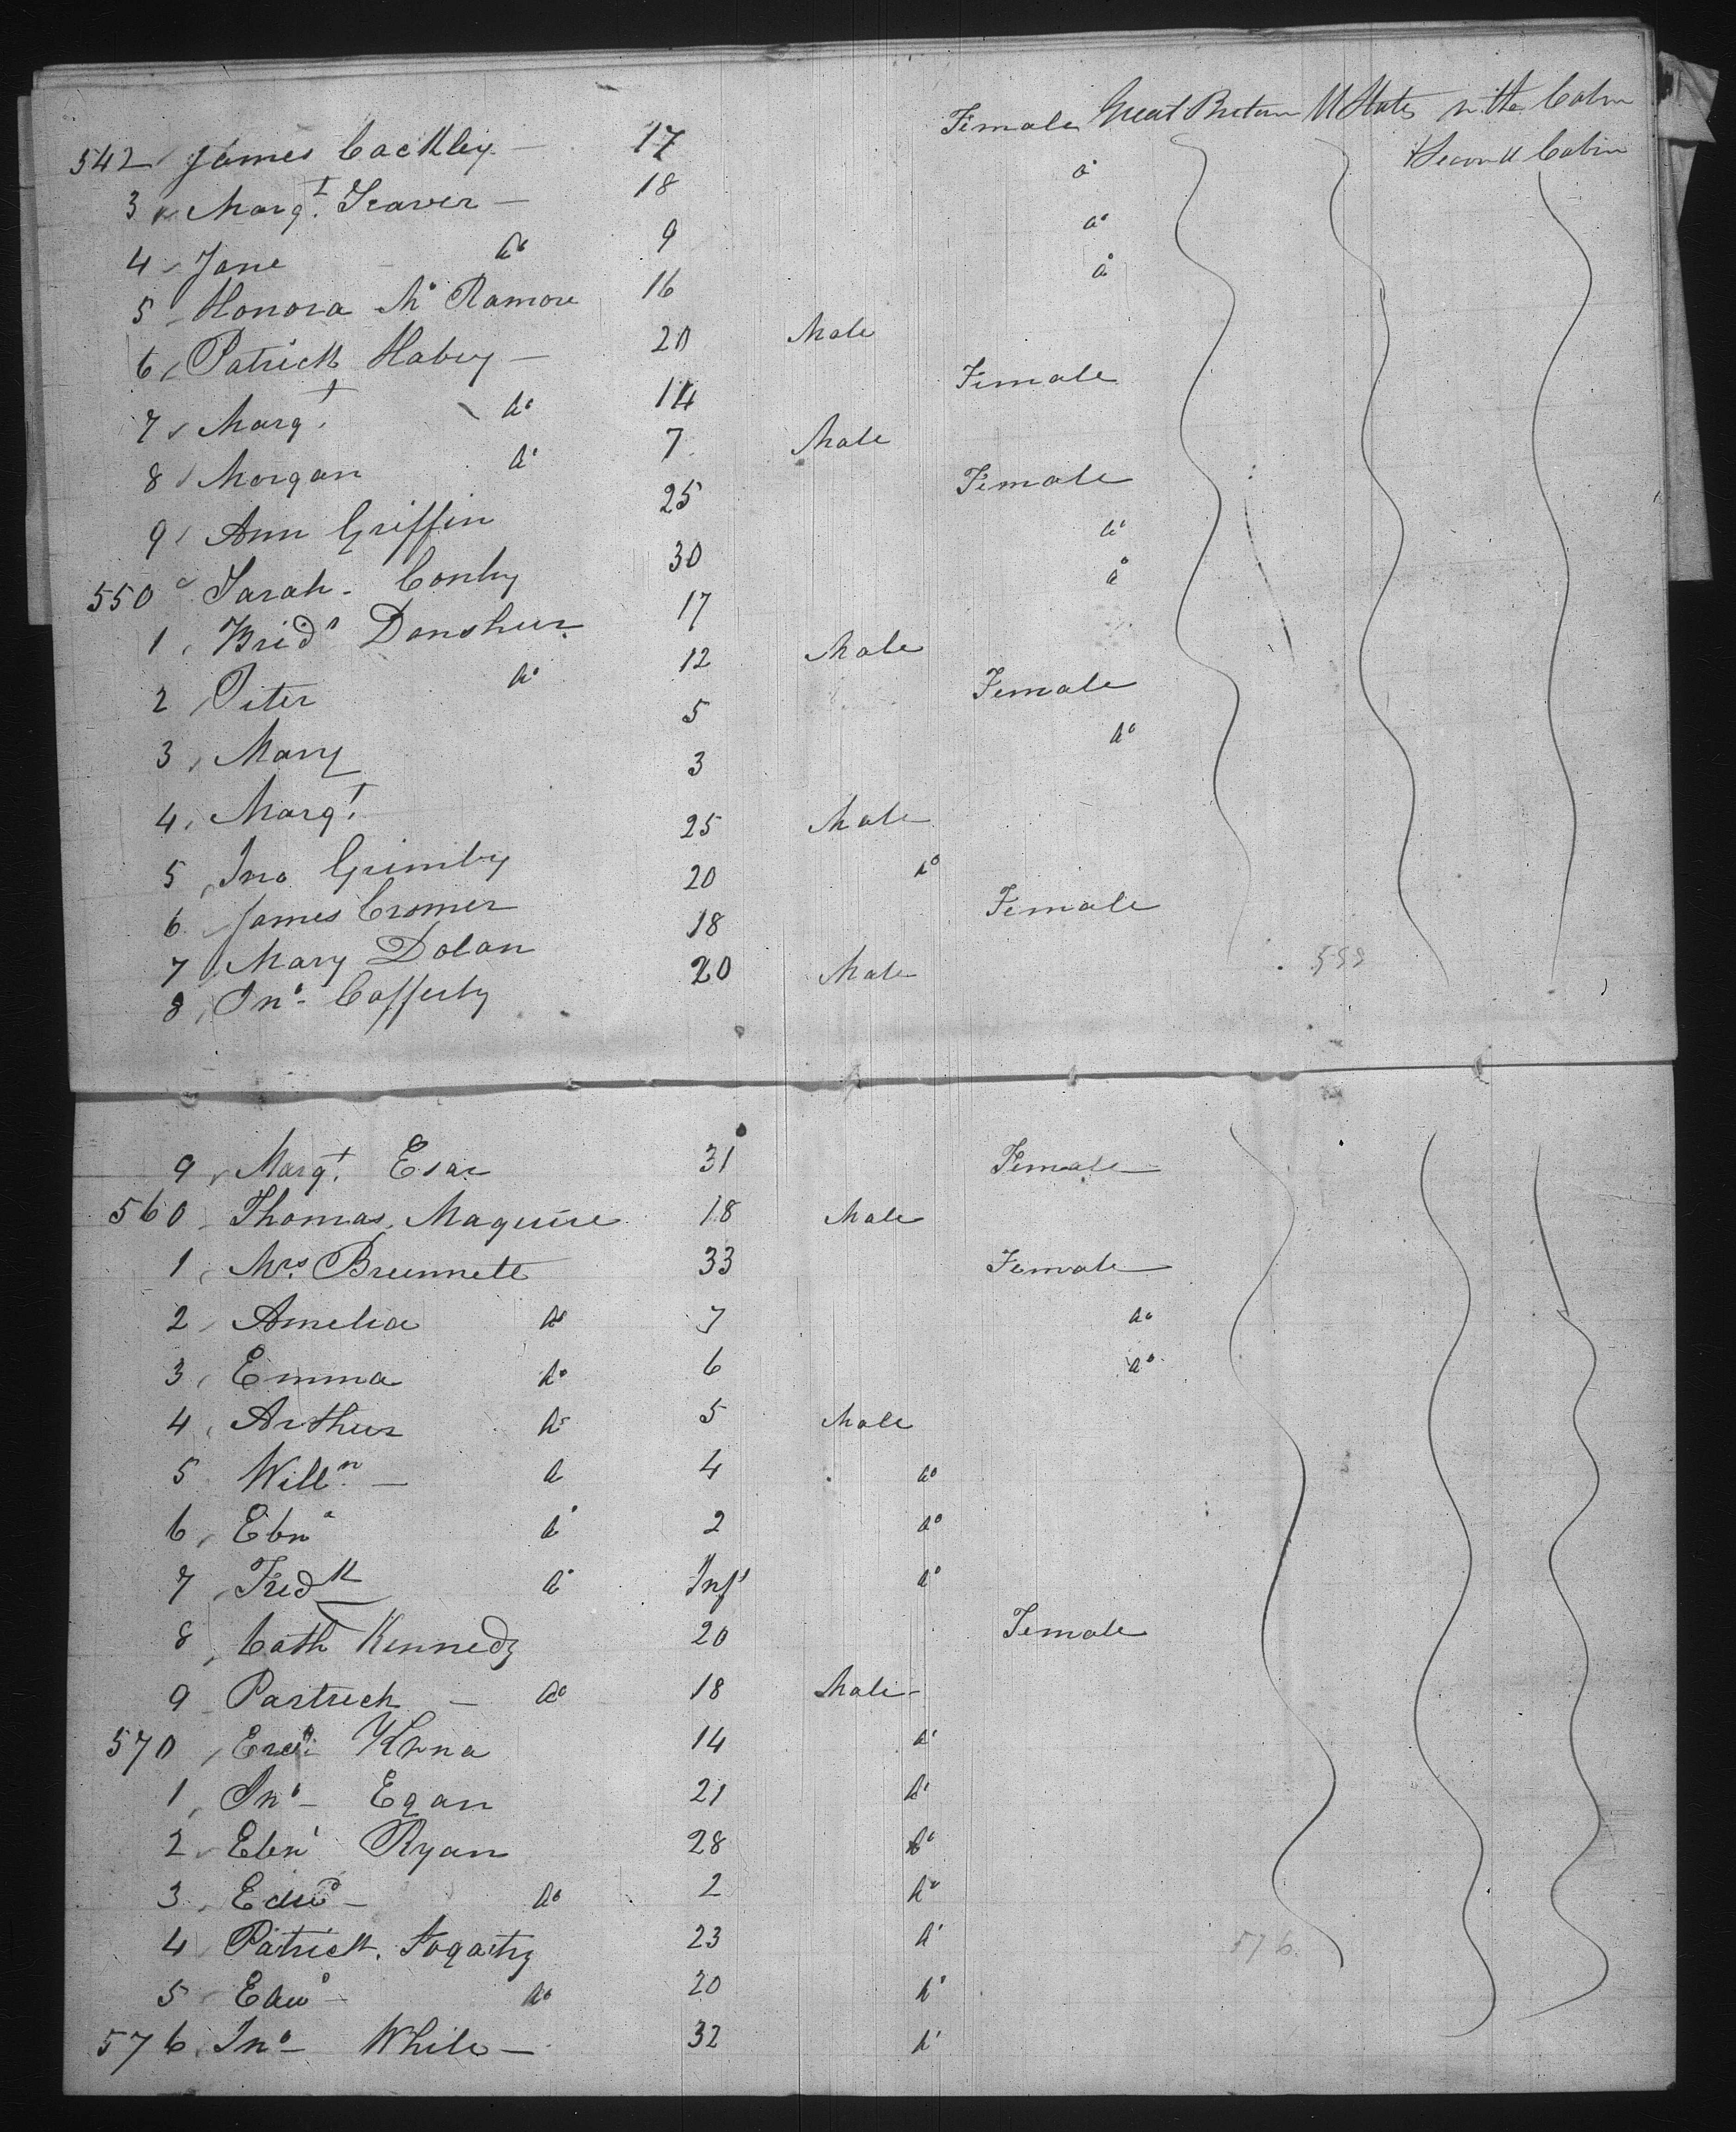 542 James Cackley - 17 Female Great Britain U States in the Cabin
3 Margt. Seaver - 18 do Second Cabin
4 Jane do 9 do
5 Honora Mc Ramore 16 do
6 Patrick Habey - 20 Male
7 Margt. do 14 Female
8 Morgan do 7 Male
9 Ann Griffin 25 Female
550 Sarah - Conley 30 do
1 Bridt Donshur 17 do
2 Peter do 12 Male
3 Mary 5 Female
4 Margt. 3 do
5 Jno Grimley 25 Male
6 James Cromer 20 do
7 Mary Dolan 18 Female
8 Jno - Cafferty 20 Male
9 Margt. Esar 31 Female
560 Thomas Maguire 18 Male
1 Mrs. Brunnett 33 Female
2 Amelia do 7 do
3 Emma do 6 do
4 Arthur do 5 Male
5 Willm - do 4 do
6 Ebnr do 2 do
7 Fredk do Inft do
8 Cath Kennedy 20 Female
9 Partrick - do 18 Male
570 14 do
1 Jno - Egan 21 do
2 Ebnr Ryan 28 do
3 Edwd - do 2 do
4 Patrick Fogarty 23 do
5 Edwd - do 20 do
576 576 Jno - While - 32 do